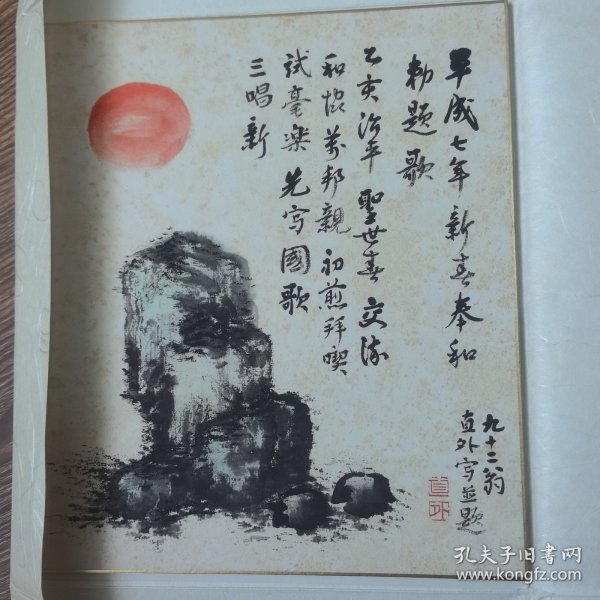 平成七年新春奉和
勅題歌
乙亥治平聖世春交流
和悦萬邦親初煎拜喫
試毫楽先写國歌
三唱新
九十二翁
直外写並題
直外
孔夫子旧书网
www.kongfz.com